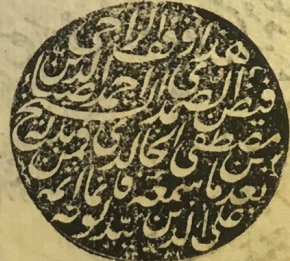 هذا وقف الراجي
فيض الصمدي احمد ضياء الدين
بن مصطفى الخالدي فمن بدله
بعد ما سمعه فانما اثمه
على الذين يبدلونه